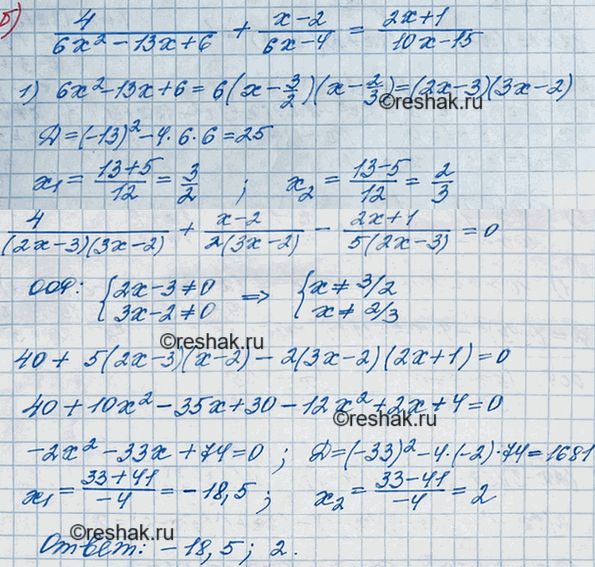 б) 4/(6x² − 13x + 6) + (x−2)/(6x−4) = (2x+1)/(10x−15)
1) 6x² − 13x + 6 = 6(x − 3/2)(x − 2/3) = (2x−3)(3x−2)
©reshak.ru
D = (−13)² − 4·6·6 = 25
x₁ = (13+5)/12 = 3/2 ; x₂ = (13−5)/12 = 2/3
4/((2x−3)(3x−2)) + (x−2)/(2(3x−2)) − (2x+1)/(5(2x−3)) = 0
ООФ: { 2x−3≠0 3x−2≠0 ⇒ { x≠3/2 x≠2/3
©reshak.ru
40 + 5(2x−3)(x−2) − 2(3x−2)(2x+1) = 0
40 + 10x² − 35x + 30 − 12x² + 2x + 4 = 0
−2x² − 33x + 74 = 0 ; D = (−33)² − 4·(−2)·74 = 1681
x₁ = (33+41)/−4 = −18,5 ; x₂ = (33−41)/−4 = 2
©reshak.ru
Ответ: −18,5 ; 2.